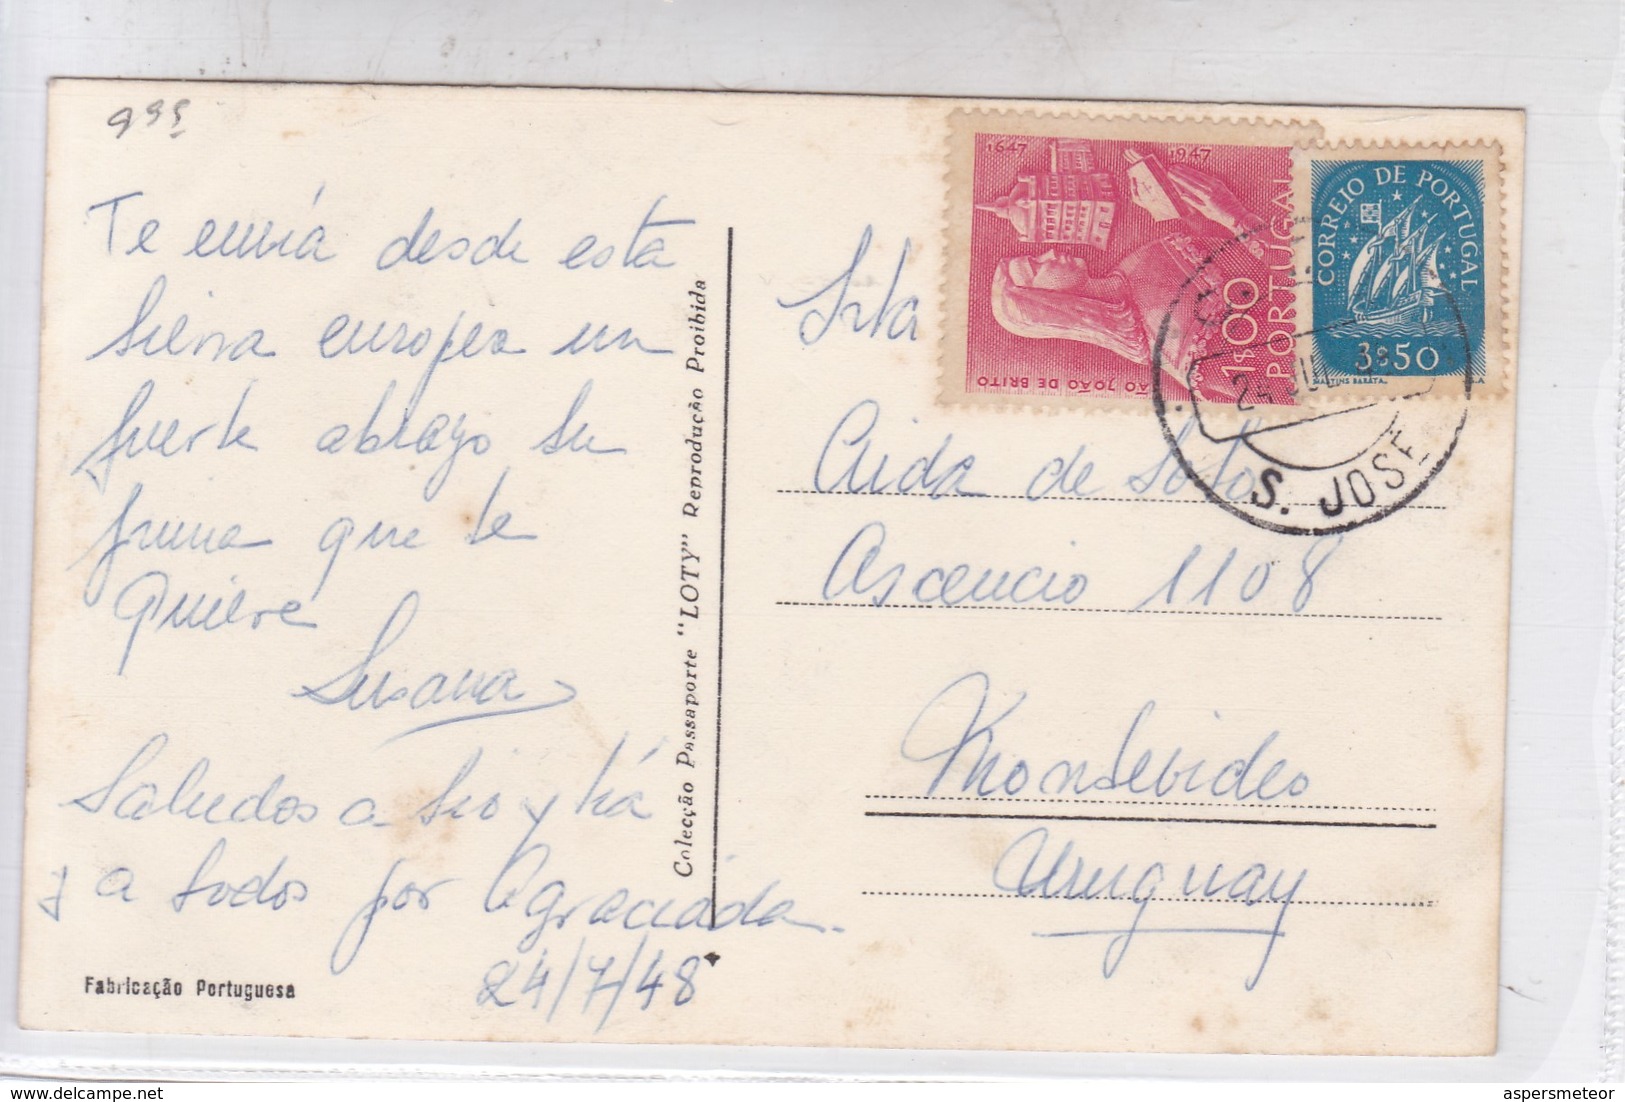 995
Te envía desde esta
tierra europea un
fuerte abrazo tu
prima que te
quiere
Susana
Saludos a tío y tía
y a todos por Agraciada.
24/7/48
Fabricação Portuguesa
Colecção Passaporte "LOTY" Reproducção Proibida
1647 1947
PORTUGAL
1$00
SÃO JOÃO DE BRITO
CORREIO DE PORTUGAL
3$50
MARTINS BARATA
JUL
S. JOSÉ
Srta
Aida de Soto
Ascencio 1108
Montevideo
Uruguay
aspersmeteor